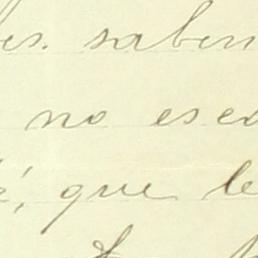 es. saben
no esco
é, que le